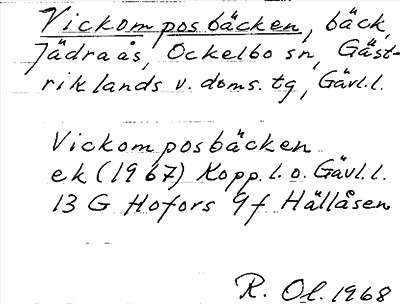 Vickomposbäcken, bäck,
Jädraås, Ockelbo sn, Gäst-
riklands v. doms. tg, Gävl.l.
Vickomposbäcken
ek (1967) Kopp.l.o.Gävl.l.
13 G Hofors 9f Hällåsen
R. Ol. 1968